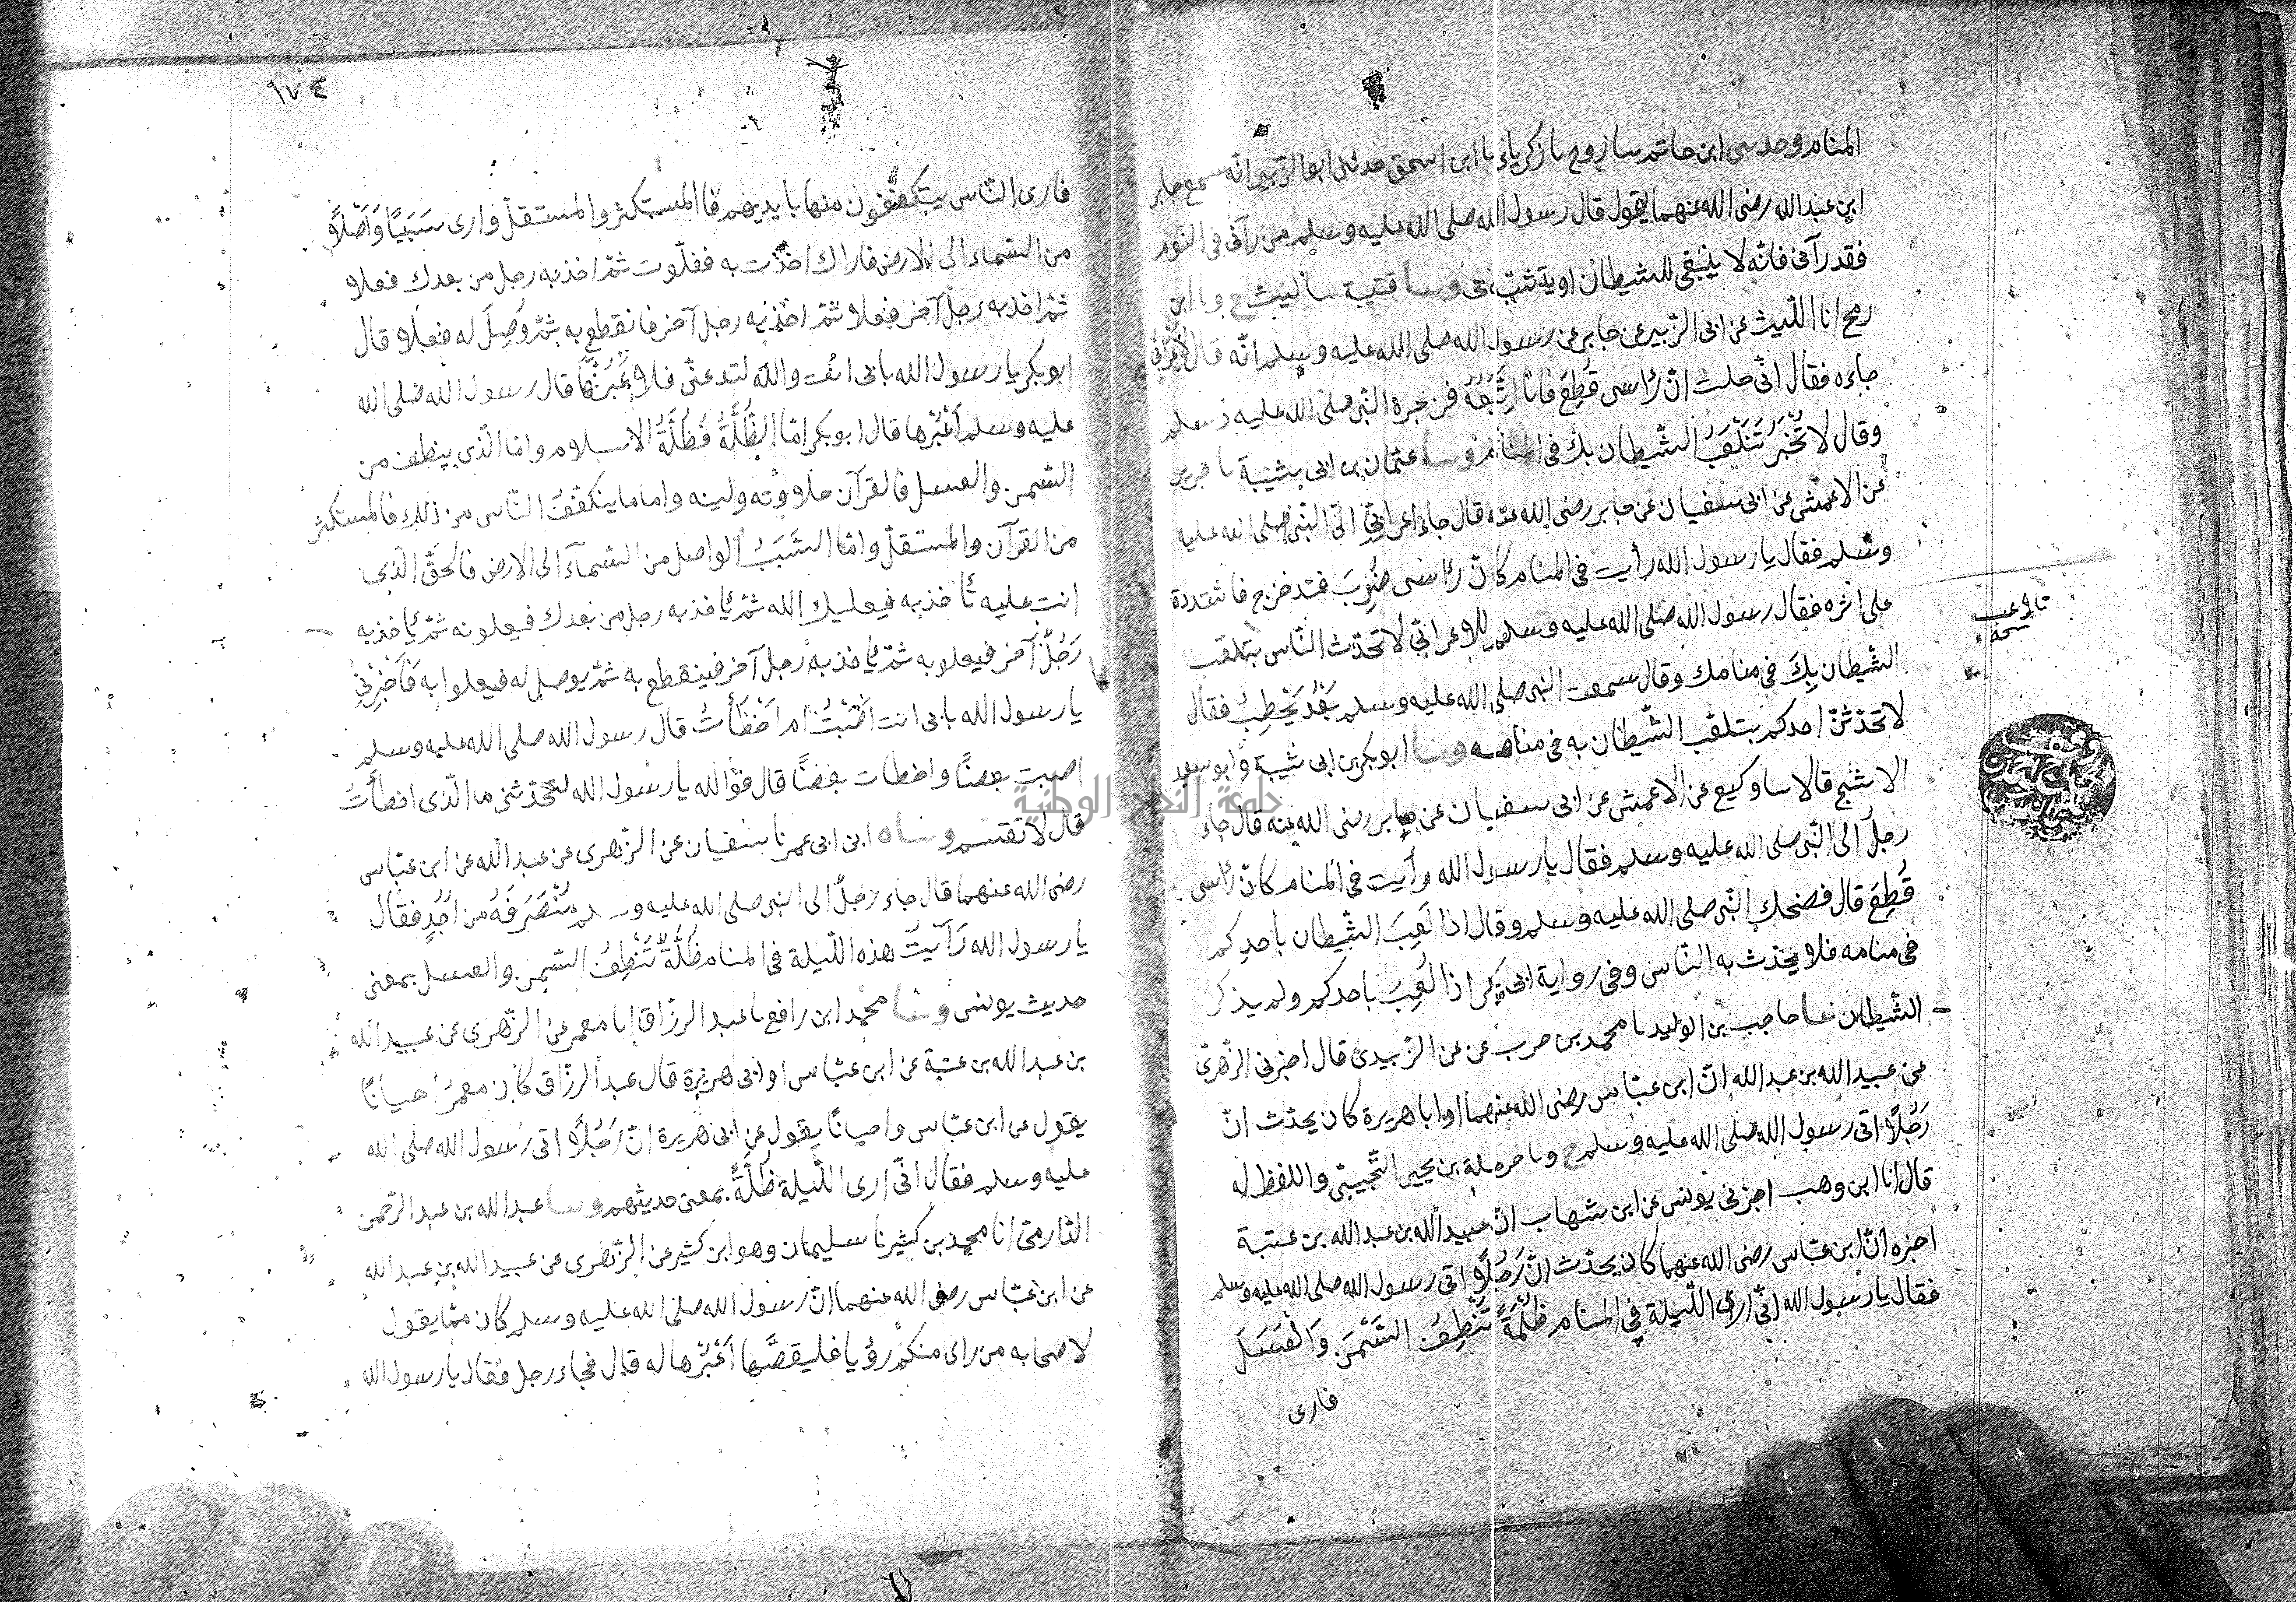 المنام وحدثنى ابن حاتم نا روح نا زكرياء نا ابن اسحق حدثنى ابو الزبير انّه سمع جابر
ابن عبد الله رضى الله عنهما يقول قال رسول الله صلى الله عليه وسلم من رآنى فى النوم
فقد رآنى فانّه لا ينبغى للشيطان ان يتشبّه بى وسا قتيبة سا ليث ح وسا ابن
رمح انا اللّيث عن ابى الزّبير عن جابر عن رسول الله صلى الله عليه وسلم انّه قال لاعرابى
جاءه فقال انّى حلمت انّ رأسى قُطِعَ فانا اَتَّبِعُهُ فزجره النّبى صلى الله عليه وسلم
وقال لا تُخْبِرْ بتَلَعُّبِ الشّيطان بك فى المنام وسا عثمان بن ابى شيبة نا جرير
عن الاعمش عن ابى سفيان عن جابر رضى الله عنه قال جاء اعرابىّ الى النّبى صلى الله عليه
وسلم فقال يا رسول الله رأيت فى المنام كانّ رأسى ضُرِبَ فتدخرج فاشتددت
على اثره فقال رسول الله صلى الله عليه وسلم للاعرابىّ لا تحدّث النّاس بتلعّب
الشيطان بِكَ فى منامك وقال سمعت النبى صلى الله عليه وسلم بَعْدُ يَخْطِبُ فقال
لا تحدّثنّ احدكم بتلعّب الشّيطان به فى منامه وسا ابو بكر بن ابى شيبة وابو سعيد
الاشج قالا سا وكيع عن الاعمش عن ابى سفيان عن جابر رضى الله عنه قال جاء
رجلٌ الى النّبى صلى الله عليه وسلم فقال يا رسول الله رأيت فى المنام كانّ رأسى
قُطِعَ قال فضحك النّبى صلى الله عليه وسلم وقال اذا لَعِبَ الشّيطان بأحدكم
فى منامه فلا يحدّث به النّاس وفى رواية ابى بكر اذا لُعِبَ باحدكم ولم يذكر
الشّيطان سا حاجب بن الوليد نا محمد بن حرب عن الزّبيدى قال اخبرنى الزّهرىّ
عن عبيد الله بن عبد الله انّ ابن عبّاس رضى الله عنهما او ابا هريرة كان يحدّث انّ
رَجُلًا اتى رسول الله صلى الله عليه وسلم ح وسا حرملة بن يحيى التّجيبىّ واللفظ له
قال انا ابن وهب اخبرنى يونس عن ابن شهاب انّ عبيد الله بن عبد الله بن عتبة
اخبره انّ ابن عبّاس رضى الله عنهما كان يحدّث انّ رَجُلًا اتى رسول الله صلى الله عليه وسلم
فقال يا رسول الله انّى ارى اللّيلة فى المنام ظُلَّةً تَنْطِفُ السَّمْنَ وَالْعَسَلَ
فارى
تلاعب
نسخة
١٧٤
فارى النّاس يتكفّفون منها بايديهم فالمستكثر والمستقلّ وارى سَبَبًا وَاصِلًا
من السّماء الى الارض فاراك اخذت به فعلوت ثمّ اخذ به رجل من بعدك فعلا
ثمّ اخذ به رجل آخر فعلا ثمّ اخذ به رجل آخر فانقطع به ثمّ وُصِلَ له فعلا قال
ابو بكر يا رسول الله بابى انت والله لتدعنّى فلاعْبُرَنَّها قال رسول الله صلى الله
عليه وسلم اُعْبُرها قال ابو بكر امّا الظُّلَّةُ فَظُلَّةُ الاسلام وامّا الّذى ينطف من
السّمن والعسل فالقرآن حلاوته ولينه واما ما يتكفّفُ النّاس من ذلك فالمستكثر
من القرآن والمستقلّ وامّا السَّبَبُ الواصل من السّماء الى الارض فالحقّ الّذى
انت عليه تأخذ به فيعليك الله ثمّ يأخذ به رجل من بعدك فيعلو به ثمّ يأخذ به
رَجُلٌ آخر فيعلو به ثمّ يأخذ به رجل آخر فينقطع به ثمّ يوصل له فيعلوا به فَاَخْبِرْنِى
يا رسول الله بابى انت اَصَبْتُ ام اَخْطَأْتُ قال رسول الله صلى الله عليه وسلم
اصبت بعضًا واخطأت بعضًا قال فوالله يا رسول الله لتحدّثنى ما الّذى اخطأتُ
قال لا تقسم وساه ابن ابى عمر نا سفيان عن الزّهرى عن عبد الله عن ابن عبّاس
رضى الله عنهما قال جاء رجلٌ الى النبى صلى الله عليه وسلم مُنْصَرَفَهُ من اُحُدٍ فقال
يا رسول الله رَأَيْتُ هذه اللّيلة فى المنام ظُلَّةً تَنْطِفُ السّمن والعسل بمعنى
حديث يونس وسا محمد ابن رافع نا عبد الرزّاق انا معمر عن الزّهرى عن عبيد الله
بن عبد الله بن عتبة عن ابن عبّاس او ابى هريرة قال عبد الرزّاق كان معمرٌ احيانًا
يقول عن ابن عبّاس واحيانًا يقول عن ابى هريرة انّ رَجُلًا اتى رسول الله صلى الله
عليه وسلم فقال انّى ارى اللّيلة ظُلَّةً بمعنى حديثهم وسا عبد الله بن عبد الرّحمن
الدّارمىّ انا محمد بن كثير نا سليمان وهو ابن كثير عن الزّهرى عن عبيد الله بن عبد الله
عن ابن عبّاس رضى الله عنهما انّ رسول الله صلى الله عليه وسلم كان ممّا يقول
لاصحابه من راى منكم رؤيا فليقصّها اَعْبُرْها له قال فجاء رجل فقال يا رسول الله